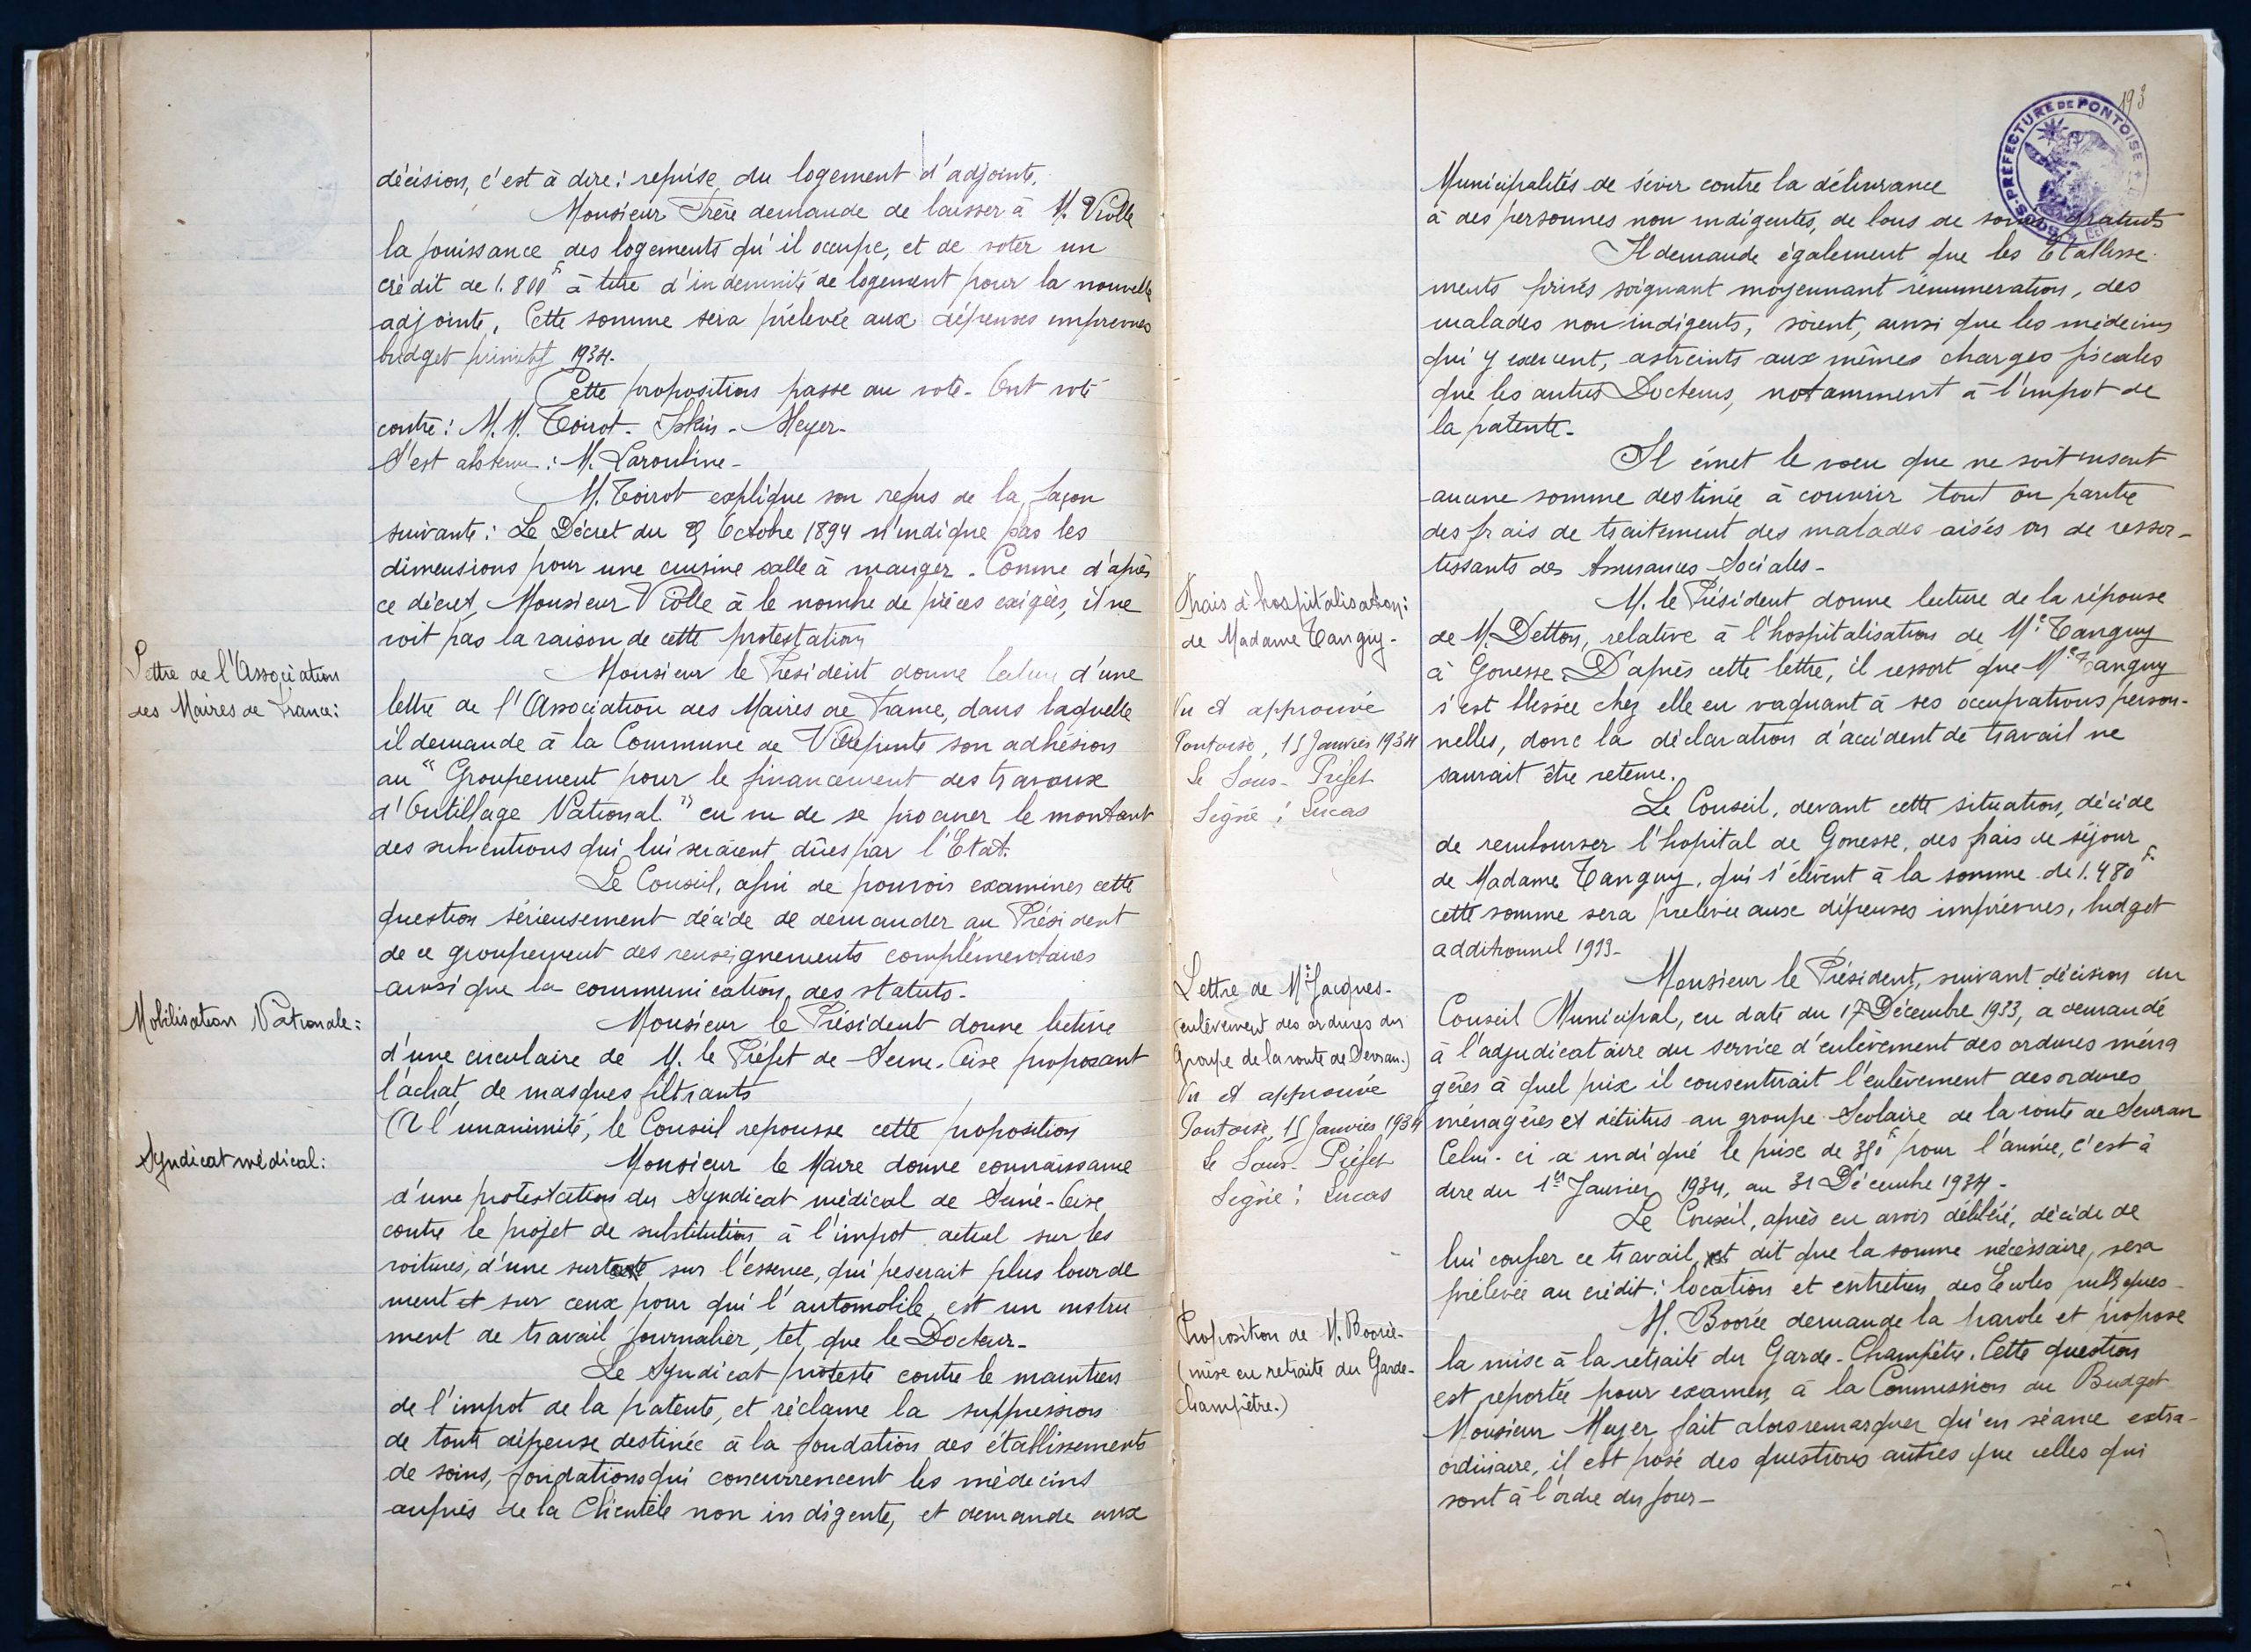 décision, c'est à dire: reprise du logement d'adjointe.
Monsieur Frère demande de laisser à M. Violle
la jouissance des logements qu'il occupe, et de voter un
crédit de 1.800F à titre d'indemnité de logement pour la nouvelle
adjointe. Cette somme sera prélevée aux dépenses imprévues
budget primitif 1934.
Cette proposition passe au vote. Ont voté
contre: M.M. Toirot - - Meyer-
S'est abstenu: M. Larouline-
M. Toirot explique son refus de la façon
suivante: Le Décret du Octobre 1894 n'indique pas les
dimensions pour une cuisine salle à manger. Comme d'après
ce décret, Monsieur Violle à le nombre de pièces exigées, il ne
voit pas la raison de cette protestation
Lettre de l'Association
des Maires de France:
Monsieur le Président donne lecture d'une
lettre de l'Association des Maires de France, dans laquelle
il demande à la Commune de Villepinte son adhésion
au "Groupement pour le financement des travaux
d'Outillage National" en vue de se procurer le montant
des subventions qui lui seraient dûes par l'Etat.
Le Conseil, afin de pouvoir examiner cette
question sérieusement décide de demander au Président
de ce groupement des renseignements complémentaires
ainsi que la communication des statuts-
Mobilisation Nationale:
Monsieur le Président donne lecture
d'une circulaire de M. le Préfet de Seine-Oise proposant
l'achat de masques filtrants
A l'unanimité, le Conseil repousse cette proposition
Syndicat médical:
Monsieur le Maire donne connaissance
d'une protestation du Syndicat médical de Seine-Oise
contre le projet de substitution à l'impot actuel sur les
voitures, d'une surtaxe sur l'essence, qui peserait plus lourde
ment et sur ceux pour qui l'automobile est un instru
ment de travail journalier, tel que le Docteur-
Le Syndicat proteste contre le maintien
de l'impot de la patente, et réclame la suppression
de toute dépense destinée à la fondation des établissements
de soins, fondations qui concurrencent les médecins
auprès de la Clientèle non indigente, et demande aux
193
SOUS-PRÉFECTURE DE PONTOISE
Municipalités de sévir contre la délivrance
à des personnes non indigentes, de bons de soins gratuits
Il demande également que les Etablisse
ments privés soignant moyennant rénumeration, des
malades non indigents, soient, ainsi que les médecins
qui y exercent, astreints aux mêmes charges fiscales
que les autres Docteurs, notamment à l'impot de
la patente-
Il émet le voeu que ne soit inscrit
aucune somme destinée à couvrir tout ou partie
des frais de traitement des malades aisés ou de ressor-
tissants des Assurances Sociales-
Frais d'hospitalisation:
de Madame Tanguy-
M. le Président donne lecture de la réponse
de M. Detton, relative à l'hospitalisation de Me Tanguy
à Gonesse. D'après cette lettre, il ressort que Me Tanguy
s'est blessée chez elle en vaquant à ses occupations person-
nelles, donc la déclaration d'accident de travail ne
saurait être retenue.
Vu et approuvé
Pontoise, 15 Janvier 1934
Le Sous-Préfet
Signé: Lucas
Le Conseil, devant cette situation, décide
de rembourser l'hopital de Gonesse, des frais de séjour
de Madame Tanguy, qui s'élèvent à la somme de 1.480F
cette somme sera prélevée aux dépenses imprévues, budget
additionnel 1933-
Lettre de Mr Jacques-
(enlèvement des ordures du
Groupe de la route de Sevran.)
Vu et approuvé
Pontoise, 15 Janvier 1934
Le Sous-Préfet
Signé: Lucas
Monsieur le Président, suivant décision du
Conseil Municipal, en date du 17 Décembre 1933, a demandé
à l'adjudicataire du service d'enlèvement des ordures ména
gères à quel prix il consentirait l'enlèvement des ordures
ménagères et détritus au groupe Scolaire de la route de Sevran
Celui-ci a indiqué le prix de 350F pour l'année, c'est à
dire du 1er Janvier 1934, au 31 Décembre 1934-
Le Conseil, après en avoir délibéré, décide de
lui confier ce travail, et dit que la somme nécessaire, sera
prélevée au crédit: location et entretien des Ecoles publiques-
Proposition de M. Boorée-
(mise en retraite du Garde-
champêtre.)
M. Boorée demande la parole et propose
la mise à la retraite du Garde-Champêtre. Cette question
est reportée pour examen, à la Commission du Budget
Monsieur Meyer fait alors remarquer qu'en séance extra-
ordinaire, il est posé des questions autres que celles qui
sont à l'ordre du jour-